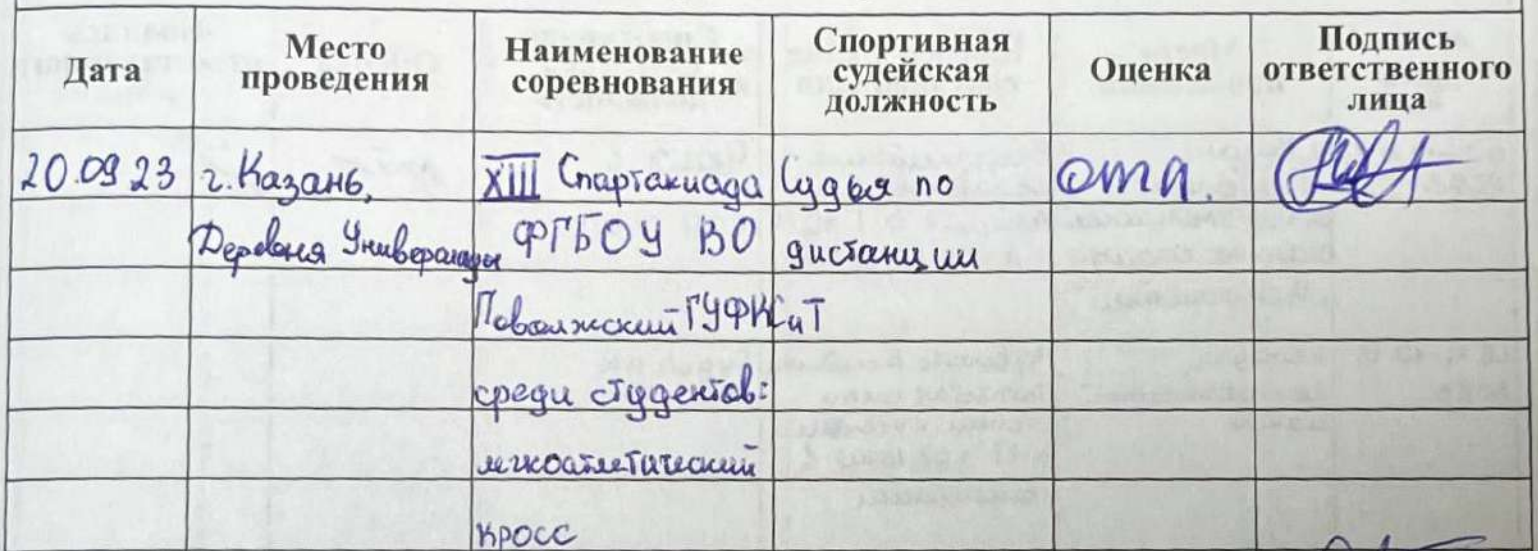 Дата Место проведения Наименование соревнования Спортивная судейская должность Оценка Подпись ответственного лица
20.09.23 г. Казань, XIII Спартакиада Судья по отл.
Деревня Универсиады ФГБОУ ВО дистанции
Поволжский ГУФКСиТ
среди студентов:
легкоатлетический
кросс